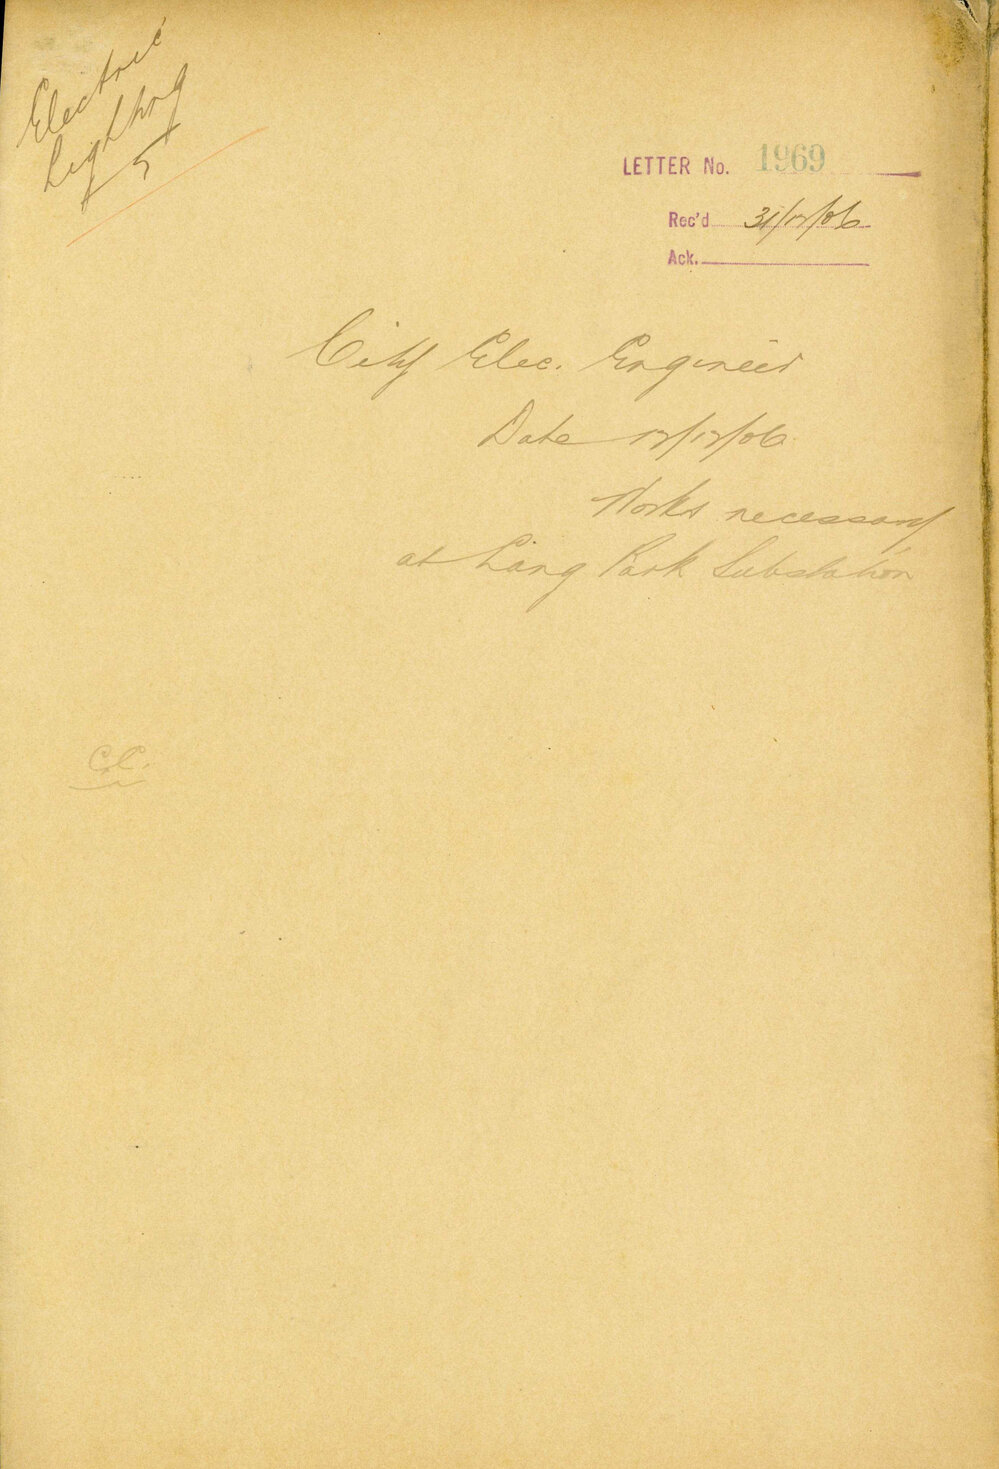 Electric
Lighting
5
LETTER No. 1969
Rec'd 31/12/06
Ack.
City Elec. Engineer
Date 12/12/06
Works necessary
at Lang Park Substation